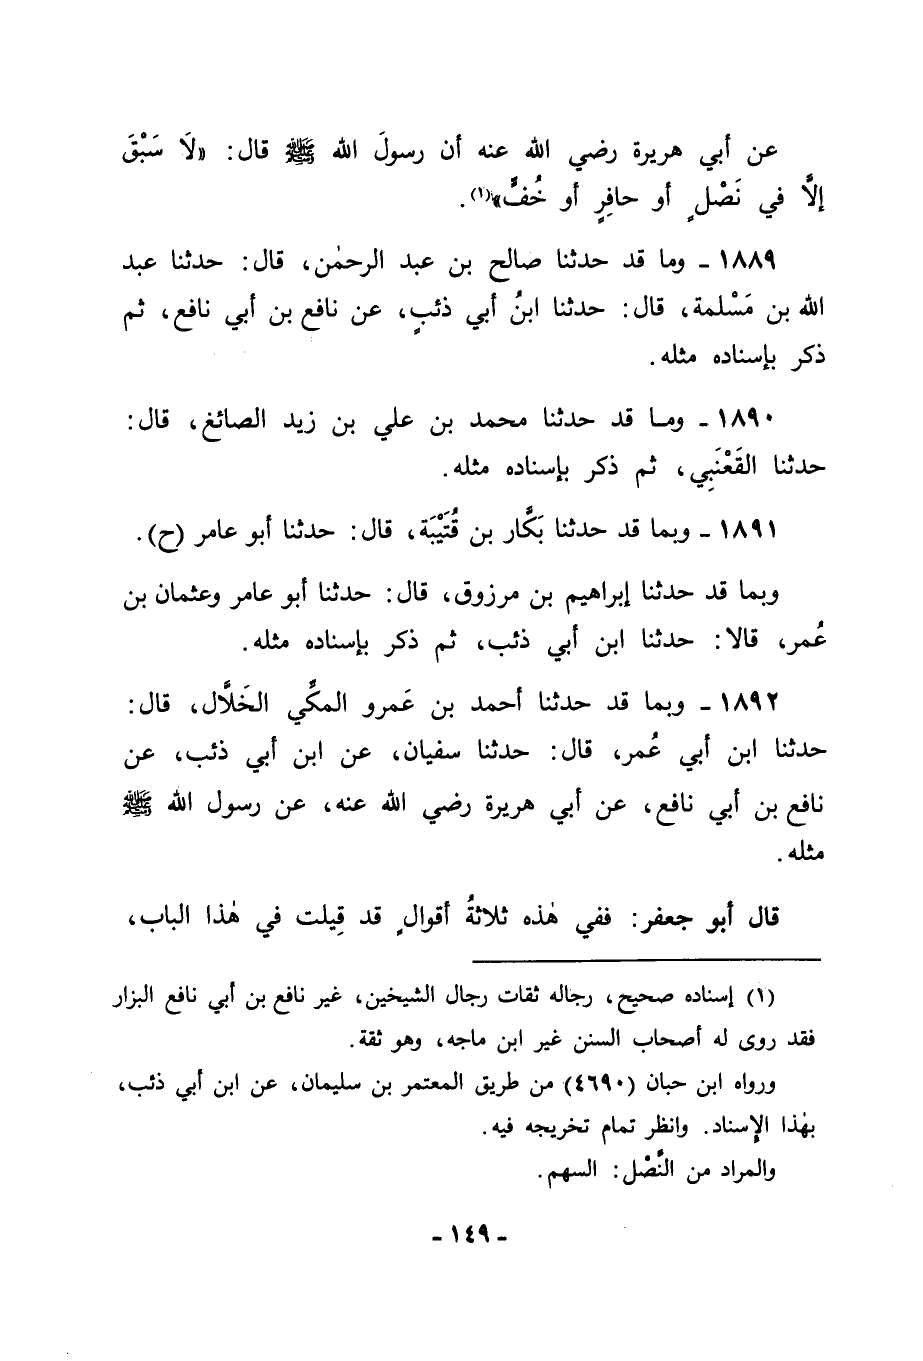 عن أبي هريرة رضي الله عنه أن رسولَ الله ﷺ قال: «لَا سَبْقَ
إلَّا في نَصْلٍ أو حافِرٍ أو خُفٍّ»(١).
١٨٨٩ ـ وما قد حدثنا صالح بن عبد الرحمٰن، قال: حدثنا عبد
الله بن مَسْلمة، قال: حدثنا ابنُ أبي ذئبٍ، عن نافع بن أبي نافع، ثم
ذكر بإسناده مثله.
١٨٩٠ ـ وما قد حدثنا محمد بن علي بن زيد الصائغ، قال:
حدثنا القَعْنَبِي، ثم ذكر بإسناده مثله.
١٨٩١ ـ وبما قد حدثنا بَكَّار بن قُتَيْبَة، قال: حدثنا أبو عامر (ح).
وبما قد حدثنا إبراهيم بن مرزوق، قال: حدثنا أبو عامر وعثمان بن
عُمر، قالا: حدثنا ابن أبي ذئب، ثم ذكر بإسناده مثله.
١٨٩٢ ـ وبما قد حدثنا أحمد بن عَمرو المكِّي الخَلَّال، قال:
حدثنا ابن أبي عُمر، قال: حدثنا سفيان، عن ابن أبي ذئب، عن
نافع بن أبي نافع، عن أبي هريرة رضي الله عنه، عن رسول الله ﷺ
مثله.
قال أبو جعفر: ففي هٰذه ثلاثةُ أقوالٍ قد قِيلت في هٰذا الباب،
(١) إسناده صحيح، رجاله ثقات رجال الشيخين، غير نافع بن أبي نافع البزار
فقد روى له أصحاب السنن غير ابن ماجه، وهو ثقة.
ورواه ابن حبان (٤٦٩٠) من طريق المعتمر بن سليمان، عن ابن أبي ذئب،
بهٰذا الإسناد. وانظر تمام تخريجه فيه.
والمراد من النَّصْل: السهم.
ـ ١٤٩ ـ